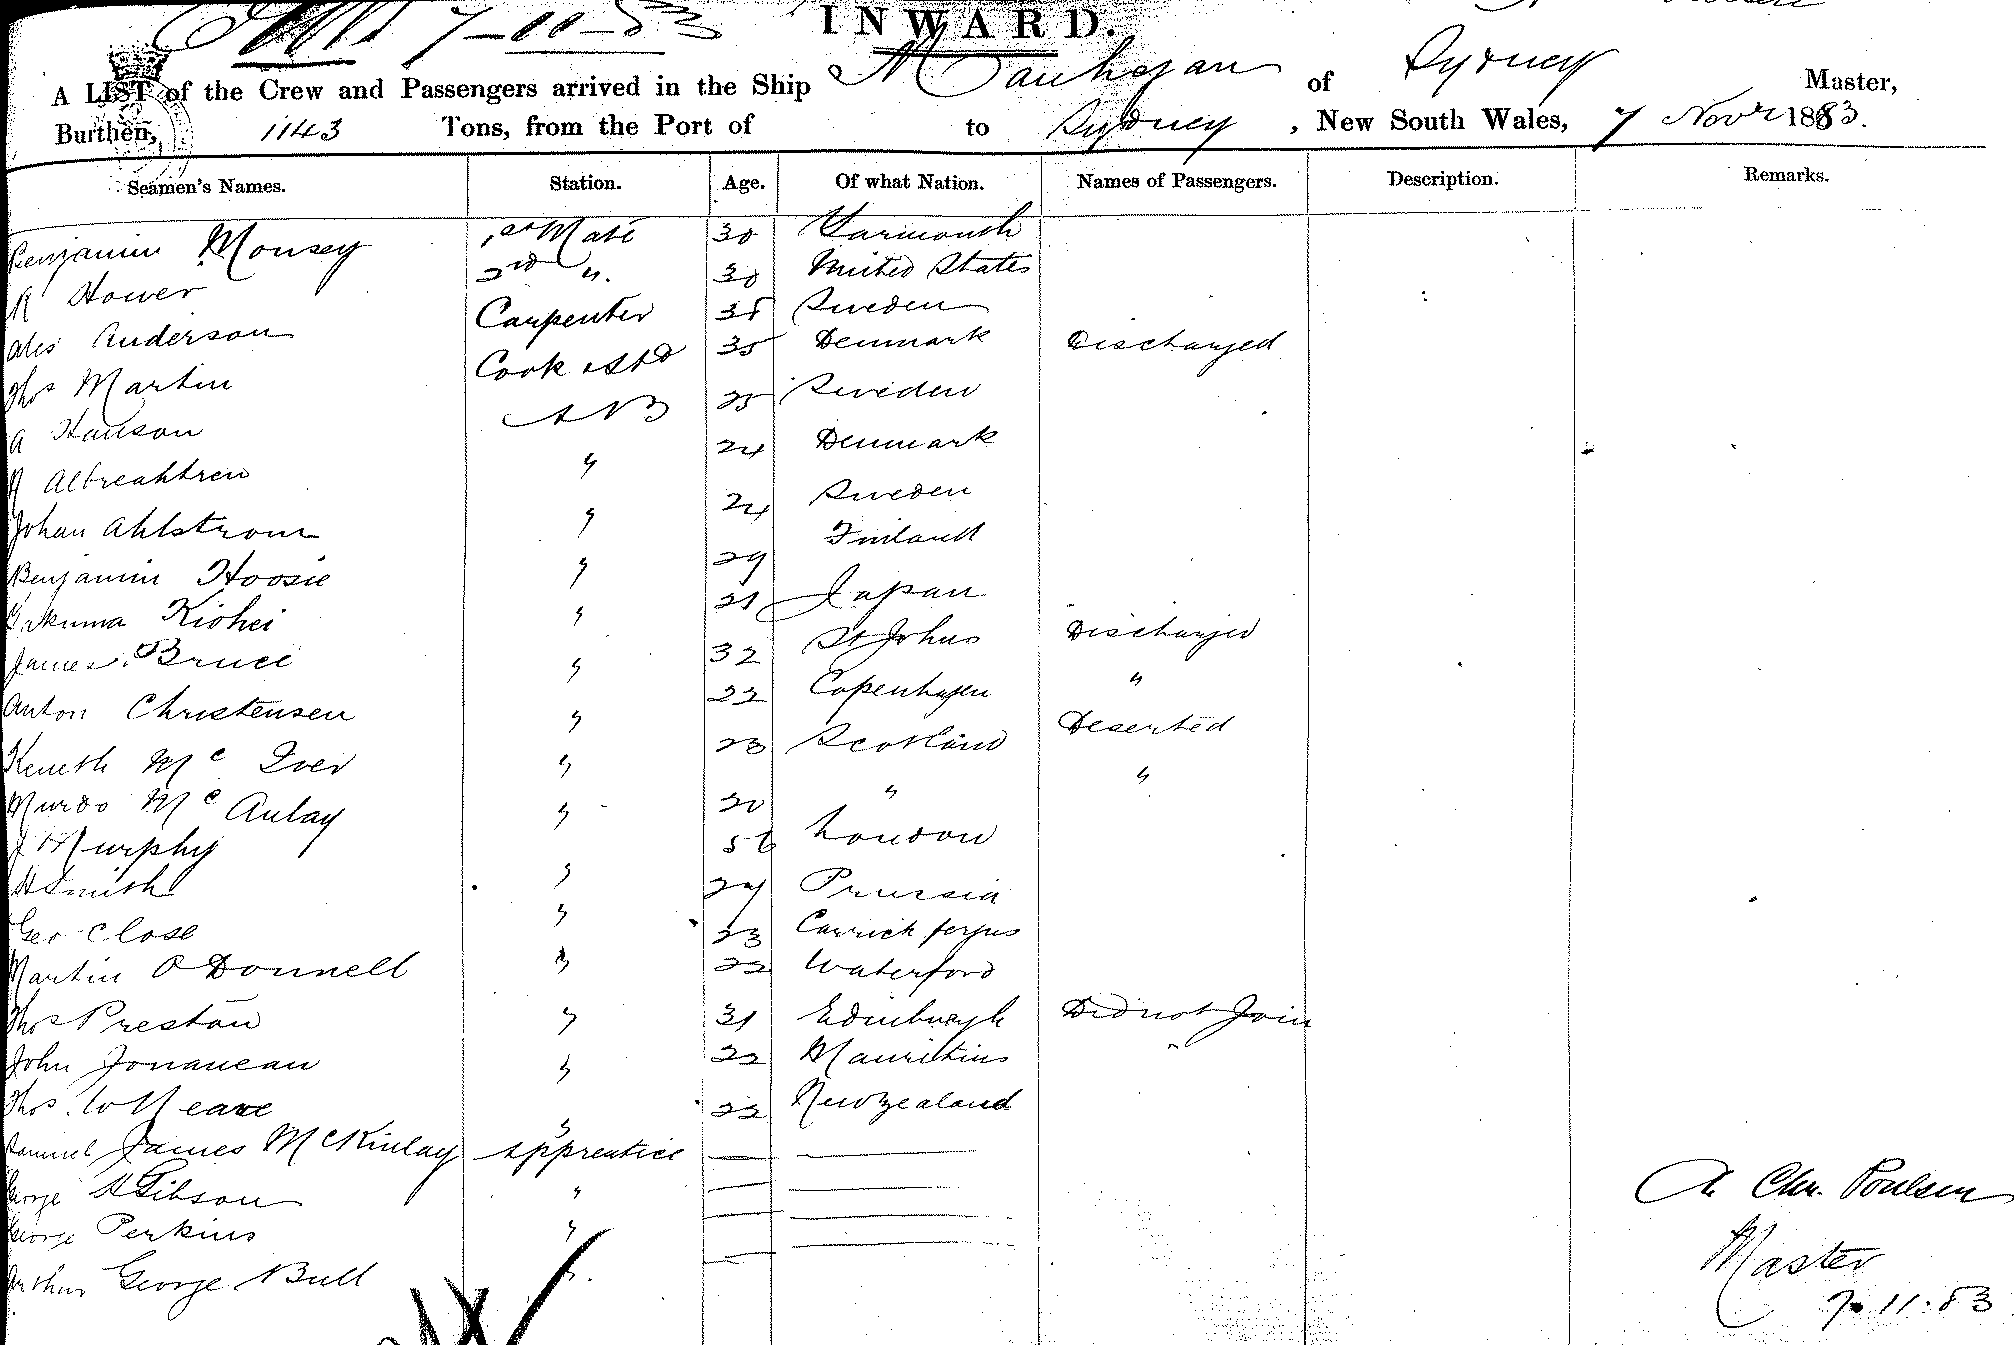 7-11-83
INWARD.
A LIST of the Crew and Passengers arrived in the Ship of Sydney Master,
Burthen, 1143 Tons, from the Port of to Sydney, New South Wales, 7 Novr 1883.
Seamen's Names. Station. Age. Of what Nation. Names of Passengers. Description. Remarks.
Benjamin Mousey 1st Mate 30 Yarmouth
Hower 2nd " 30 United States
Anderson Carpenter 38 Sweden
Thos Martin Cook & Std 35 Denmark Discharged
A Hanson AB 25 Sweden
Albreahtren " 24 Denmark
Johan Ahlstrom " 24 Sweden
Benjamin Hoosie " 29 Finland
Kiohei " 21 Japan
James Bruce " 32 St Johns Discharged
Anton Christensen " 22 Copenhagen "
Keneth Mc Iver " 23 Scotland Deserted
Murdo Mc Aulay " 20 " "
J Murphy " 56 London
H Smith " 24 Prussia
Geo Close " 23 Carrick fergus
Martin O Donnell " 22 Waterford
Thos Preston " 31 Edinburgh Did not Join
John Jonaneau " 22 Mauritius
Thos. " 22 New Zealand
Samuel James McKinlay Apprentice
George H Gibson "
George Perkins "
Arthur George Bull "
A. Chr. Poulsen
Master
7-11-83